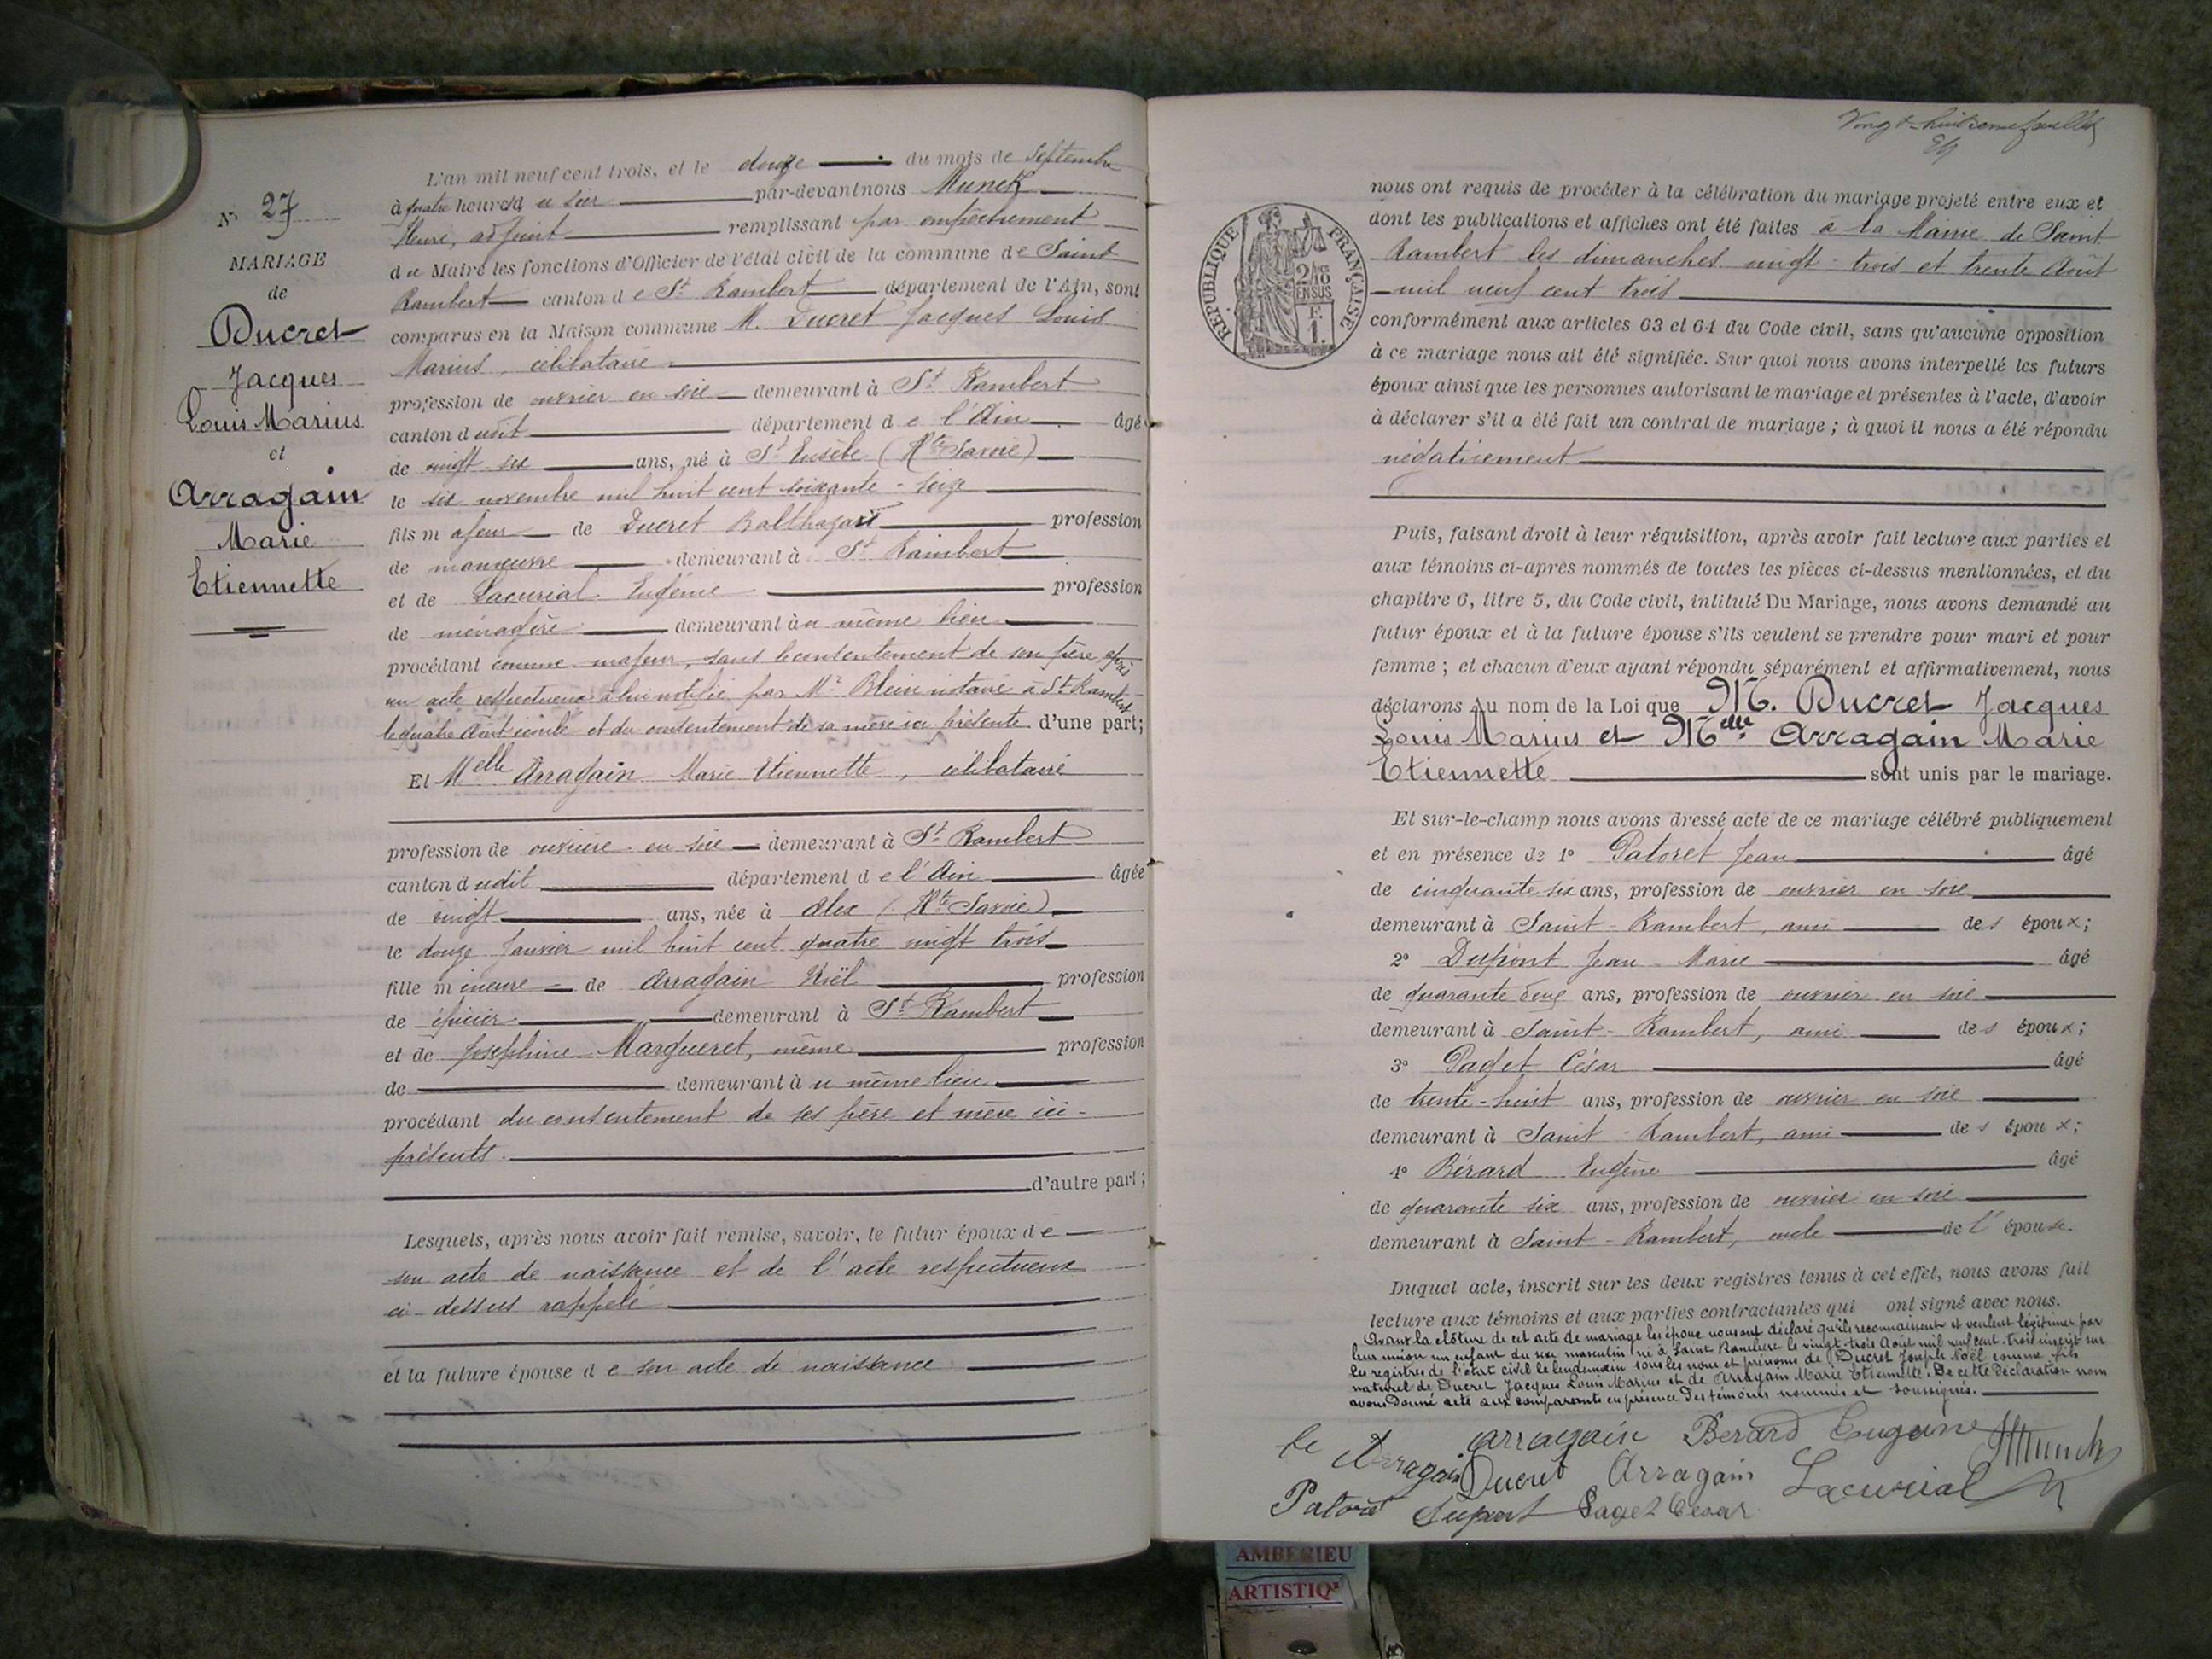 N° 27
MARIAGE
de
Ducret
Jacques
Louis Marius
et
Arragain
Marie
Etiennette
L'an mil neuf cent trois, et le douze du mois de Septembre
à quatre heures du soir par-devant nous Munck
Henri, adjoint remplissant par empêchement
du Maire les fonctions d'Officier de l'état civil de la commune de Saint
Rambert canton de St Rambert département de l'Ain, sont
comparus en la Maison commune M. Ducret Jacques Louis
Marius, célibataire
profession de ouvrier en soie demeurant à St Rambert
canton dudit département de l'Ain âgé
de vingt-six ans, né à St Eusèbe (Hte Savoie)
le six novembre mil huit cent soixante-seize
fils majeur de Ducret Balthazard profession
de manœuvre demeurant à St Rambert
et de Lacurial Eugénie profession
de ménagère demeurant au même lieu
procédant comme majeur, sans le consentement de son père après
un acte respectueux à lui notifié par Me Blein notaire à St Rambert
le quatre Août écoulé et du consentement de sa mère ici présente d'une part;
Et Melle Arragain Marie Etiennette, célibataire
profession de ouvrière en soie demeurant à St Rambert
canton dudit département de l'Ain âgée
de vingt ans, née à Alex (Hte Savoie)
le douze Janvier mil huit cent quatre vingt trois
fille mineure de Arragain Noël profession
de épicier demeurant à St Rambert
et de Joséphine Margueret, même profession
de demeurant au même lieu
procédant du consentement de ses père et mère ici-
présents.
d'autre part;
Lesquels, après nous avoir fait remise, savoir, le futur époux de
son acte de naissance et de l'acte respectueux
ci-dessus rappelé
et la future épouse de son acte de naissance
Vingt-huitième feuillet
RÉPUBLIQUE FRANÇAISE
2/10
EN SUS
F.
1.
nous ont requis de procéder à la célébration du mariage projeté entre eux et
dont les publications et affiches ont été faites à la Mairie de Saint
Rambert les dimanches vingt-trois et trente Août
mil neuf cent trois
conformément aux articles 63 et 64 du Code civil, sans qu'aucune opposition
à ce mariage nous ait été signifiée. Sur quoi nous avons interpellé les futurs
époux ainsi que les personnes autorisant le mariage et présentes à l'acte, d'avoir
à déclarer s'il a été fait un contrat de mariage ; à quoi il nous a été répondu
négativement
Puis, faisant droit à leur réquisition, après avoir fait lecture aux parties et
aux témoins ci-après nommés de toutes les pièces ci-dessus mentionnées, et du
chapitre 6, titre 5, du Code civil, intitulé Du Mariage, nous avons demandé au
futur époux et à la future épouse s'ils veulent se prendre pour mari et pour
femme ; et chacun d'eux ayant répondu séparément et affirmativement, nous
déclarons au nom de la Loi que M. Ducret Jacques
Louis Marius et Melle Arragain Marie
Etiennette sont unis par le mariage.
Et sur-le-champ nous avons dressé acte de ce mariage célébré publiquement
et en présence de 1° Patoret Jean âgé
de cinquante six ans, profession de ouvrier en soie
demeurant à Saint-Rambert, ami des époux;
2° Dupont Jean-Marie âgé
de quarante deux ans, profession de ouvrier en soie
demeurant à Saint-Rambert, ami des époux;
3° Paget César âgé
de trente-huit ans, profession de ouvrier en soie
demeurant à Saint-Rambert, ami des époux;
4° Bérard Eugène âgé
de quarante six ans, profession de ouvrier en soie
demeurant à Saint-Rambert, oncle de l'épouse.
Duquel acte, inscrit sur les deux registres tenus à cet effet, nous avons fait
lecture aux témoins et aux parties contractantes qui ont signé avec nous.
Avant la clôture de cet acte de mariage les époux nous ont déclaré qu'ils reconnaissent et veulent légitimer par
leur union un enfant du sexe masculin né à Saint Rambert le vingt-trois Août mil neuf cent-trois inscrit sur
les registres de l'état civil le lendemain sous les nom et prénoms de Ducret Joseph Noël comme fils
naturel de Ducret Jacques Louis Marius et de Arragain Marie Etiennette. De cette déclaration nous
avons donné acte aux comparants en présence des témoins nommés et soussignés.
fe Arragain arragain Berard Eugene HMunck
Ducret Arragain Lacurial
Patoret Dupont Paget Cesar
AMBERIEU
ARTISTIQ